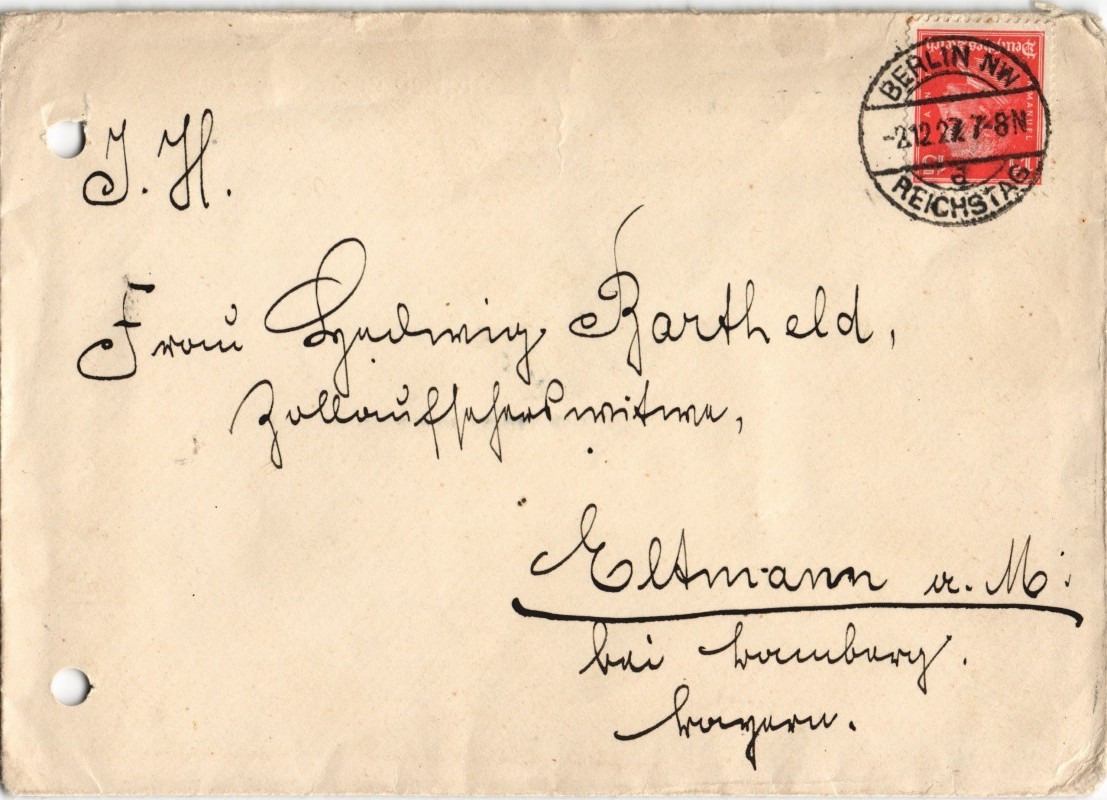 BERLIN NW
-2.12.27. 7-8N
d
REICHSTAG
Deutsches Reich
15
15
J. H.
Frau Hedwig Bartheld,
Zollaufseherswitwe,
Eltmann a. M.
bei Bamberg.
Bayern.